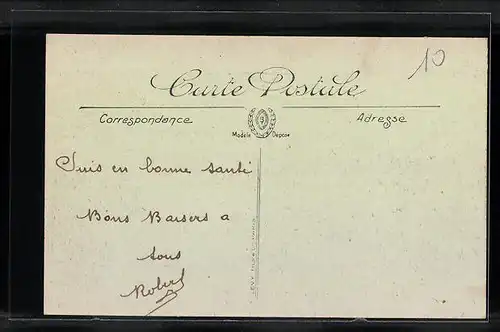 10
Carte Postale
Correspondance
Adresse
Modèle Déposé
Suis en bonne santé
Bons Baisers a
tous
Robert